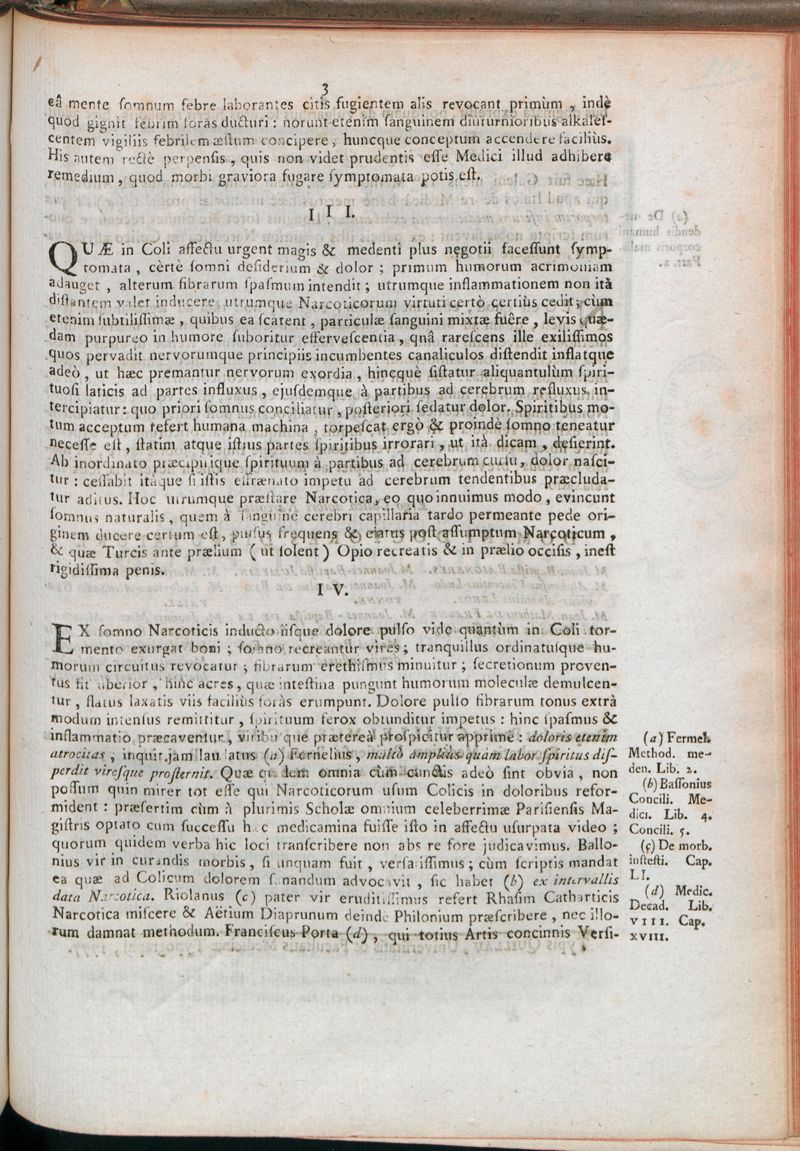 3
eâ mente ſomnum febre laborantes citis fugientem alis revocant primùm , indè
quod gignit febrim foras ducturi : norunt etenim ſanguinem diuturnioribus alkaleſ-
centem vigiliis febrilem æſtum concipere , huncque conceptum accendere faciliùs.
His autem rectè perpenſis , quis non videt prudentis eſſe Medici illud adhibere
remedium , quod morbi graviora fugare ſymptomata potis eſt.
I I I.
QUÆ in Coli affectu urgent magis & medenti plus negotii faceſſunt ſymp-
tomata , cèrtè ſomni deſiderium & dolor ; primum humorum acrimoniam
adauget , alterum fibrarum ſpaſmum intendit ; utrumque inflammationem non ità
diſtantem valet inducere ; utrumque Narcoticorum virtuti certò certiùs cedit ; cùm
etenim ſubtiliſſimæ , quibus ea ſcatent , particulæ ſanguini mixtæ fuêre , levis quæ-
dam purpureo in humore ſuboritur efferveſcentia , quâ rareſcens ille exiliſſimos
quos pervadit nervorumque principiis incumbentes canaliculos diſtendit inflatque
adeò , ut hæc premantur nervorum exordia , hincque ſiſtatur aliquantulùm ſpiri-
tuoſi laticis ad partes influxus , ejuſdemque à partibus ad cerebrum refluxus in-
tercipiatur : quo priori ſomnus conciliatur , poſteriori ſedatur dolor. Spiritibus mo-
tum acceptum refert humana machina , torpeſcat ergò & proindè ſomno teneatur
neceſſe eſt , ſtatim atque iſtius partes ſpiritibus irrorari , ut ità dicam , deſierint.
Ab inordinato præcipitique ſpirituum à partibus ad cerebrum curſu , dolor naſci-
tur : ceſſabit itàque ſi iſtis effrænato impetu ad cerebrum tendentibus præcluda-
tur aditus. Hoc utrumque præſtare Narcotica, eo quo innuimus modo , evincunt
ſomnus naturalis , quem à ſanguine cerebri capillaria tardo permeante pede ori-
ginem ducere certum eſt , pulſus frequens & elatus poſt aſſumptum Narcoticum ,
& quæ Turcis ante prælium ( ut ſolent ) Opio recreatis & in prælio occiſis , ineſt
rigidiſſima penis.
I V.
EX ſomno Narcoticis inducto iiſque dolore pulſo vide quantùm in Coli tor-
mento exurgat boni ; ſomno recreantur vires ; tranquillus ordinatuſque hu-
morum circuitus revocatur ; fibrarum erethiſmus minuitur ; ſecretionum proven-
tus fit uberior , hinc acres , quæ inteſtina pungunt humorum moleculæ demulcen-
tur , flatus laxatis viis faciliùs foràs erumpunt. Dolore pulſo fibrarum tonus extrà
modum intenſus remittitur , ſpirituum ferox obtunditur impetus : hinc ſpaſmus &
inflammatio præcaventur , viribuſque præterea proſpicitur apprimè : doloris etenim
atrocitas , inquit jam laudatus (a) Fernelius , multò ampliùs quàm labor ſpiritus diſ-
perdit vireſque proſternit. Quæ quidem omnia cùm cunctis adeò ſint obvia , non
poſſum quin mirer tot eſſe qui Narcoticorum uſum Colicis in doloribus refor-
mident : præſertim cùm à plurimis Scholæ omnium celeberrimæ Pariſienſis Ma-
giſtris optato cum ſucceſſu hæc medicamina fuiſſe iſto in affectu uſurpata video ;
quorum quidem verba hic loci tranſcribere non abs re fore judicavimus. Ballo-
nius vir in curandis morbis , ſi unquam fuit , verſatiſſimus ; cùm ſcriptis mandat
ea quæ ad Colicum dolorem ſanandum advocavit , ſic habet (b) ex intervallis
data Narcotica. Riolanus (c) pater vir eruditiſſimus refert Rhaſim Catharticis
Narcotica miſcere & Aëtium Diaprunum deinde Philonium præſcribere , nec illo-
rum damnat methodum. Franciſcus Porta (d) , qui totius Artis concinnis Verſi-
(a) Fernel.
Method. me-
den. Lib. 2.
(b) Baſſonius
Concili. Me-
dici. Lib. 4.
Concili. 5.
(c) De morb.
inſteſti. Cap.
LI.
(d) Medic.
Decad. Lib.
VIII. Cap.
XVIII.